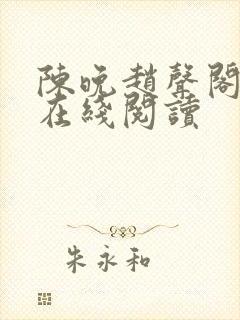 陳晚趙聲閣
在綫閱讀
朱永和